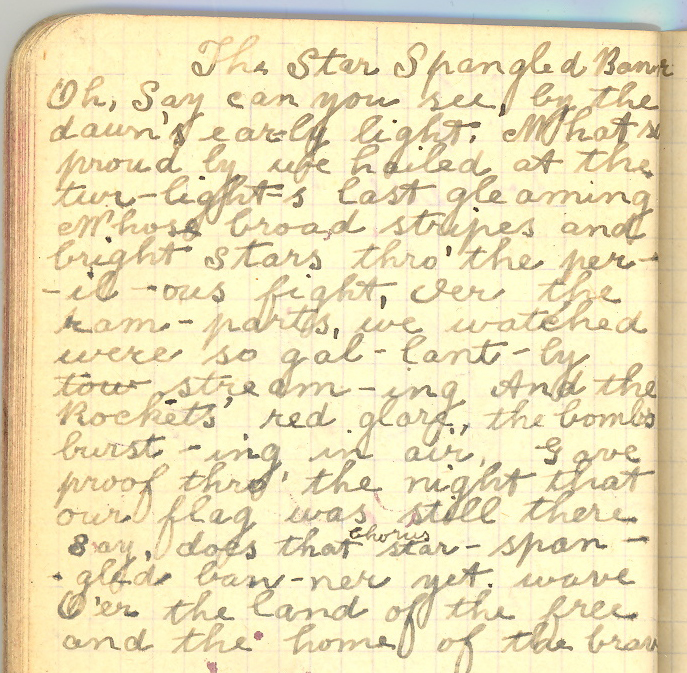 The Star Spangled Banr
Oh, Say can you see, by the
dawn's early light. What so
proud ly we hailed at the
twi-light-s last gleaming
Whose broad stripes and
bright Stars thro' the per-
-il-ous fight, Oer the
ram-parts, we watched
were so gal-lant-ly
tow stream-ing And the
Rockets' red glare, the bombs
burst-ing in air, Gave
proof thro' the night that
our flag was still there
Chorus
Say, does that star-span-
gled ban-ner yet wave
O'er the land of the free
and the home of the brav